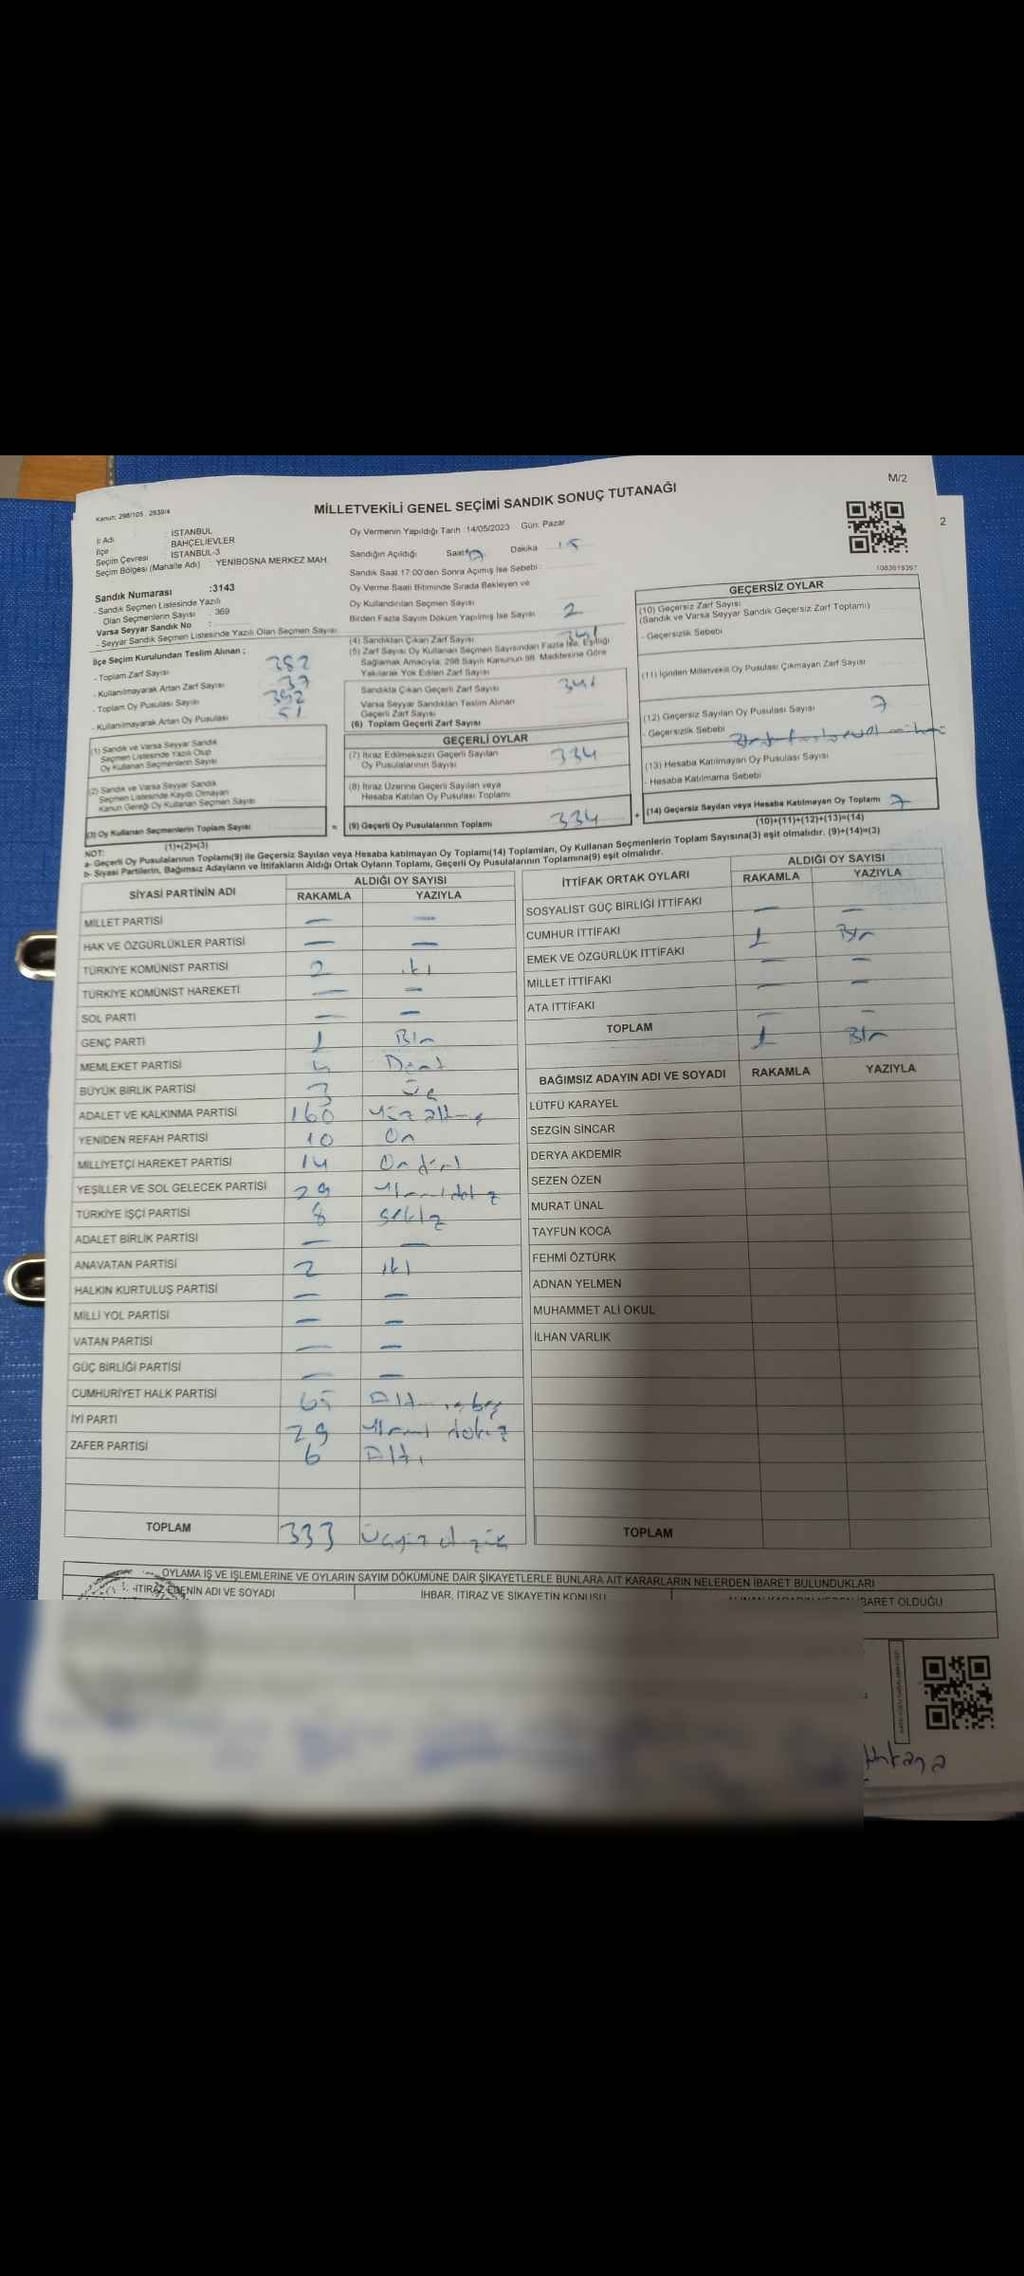 M/2
MİLLETVEKİLİ GENEL SEÇİMİ SANDIK SONUÇ TUTANAĞI
2
Kanun: 298/105 , 2839/4
İl Adı : İSTANBUL
İlçe : BAHÇELİEVLER
Seçim Çevresi : İSTANBUL-3
Seçim Bölgesi (Mahalle Adı) : YENİBOSNA MERKEZ MAH.
Sandık Numarası :3143
- Sandık Seçmen Listesinde Yazılı
Olan Seçmenlerin Sayısı : 369
Varsa Seyyar Sandık No :
- Seyyar Sandık Seçmen Listesinde Yazılı Olan Seçmen Sayısı
Oy Vermenin Yapıldığı Tarih :14/05/2023 Gün: Pazar
Sandığın Açıldığı Saat Dakika 15
Sandık Saat 17:00'den Sonra Açılmış İse Sebebi
Oy Verme Saati Bitiminde Sırada Bekleyen ve
Oy Kullandırılan Seçmen Sayısı
Birden Fazla Sayım Döküm Yapılmış İse Sayısı 2
1083619367
İlçe Seçim Kurulundan Teslim Alınan :
- Toplam Zarf Sayısı
- Kullanılmayarak Artan Zarf Sayısı
- Toplam Oy Pusulası Sayısı
- Kullanılmayarak Artan Oy Pusulası 51
(1) Sandık ve Varsa Seyyar Sandık
Seçmen Listesinde Yazılı Olup
Oy Kullanan Seçmenlerin Sayısı
(2) Sandık ve Varsa Seyyar Sandık
Seçmen Listesinde Kayıtlı Olmayan
Kanun Gereği Oy Kullanan Seçmen Sayısı
(3) Oy Kullanan Seçmenlerin Toplam Sayısı
(1)+(2)=(3)
(4) Sandıktan Çıkan Zarf Sayısı 341
(5) Zarf Sayısı Oy Kullanan Seçmen Sayısından Fazla İse, Eşitliği
Sağlamak Amacıyla, 298 Sayılı Kanunun 98. Maddesine Göre
Yakılarak Yok Edilen Zarf Sayısı
Sandıkta Çıkan Geçerli Zarf Sayısı 341
Varsa Seyyar Sandıktan Teslim Alınan
Geçerli Zarf Sayısı
(6) Toplam Geçerli Zarf Sayısı
GEÇERLİ OYLAR
(7) İtiraz Edilmeksizin Geçerli Sayılan
Oy Pusulalarının Sayısı 334
(8) İtiraz Üzerine Geçerli Sayılan veya
Hesaba Katılan Oy Pusulası Toplamı
= (9) Geçerli Oy Pusulalarının Toplamı 334 +
GEÇERSİZ OYLAR
(10) Geçersiz Zarf Sayısı
(Sandık ve Varsa Seyyar Sandık Geçersiz Zarf Toplamı)
- Geçersizlik Sebebi
(11) İçinden Milletvekili Oy Pusulası Çıkmayan Zarf Sayısı
(12) Geçersiz Sayılan Oy Pusulası Sayısı 7
- Geçersizlik Sebebi
(13) Hesaba Katılmayan Oy Pusulası Sayısı
- Hesaba Katılmama Sebebi
(14) Geçersiz Sayılan veya Hesaba Katılmayan Oy Toplamı 7
(10)+(11)+(12)+(13)=(14)
NOT:
a- Geçerli Oy Pusulalarının Toplamı(9) ile Geçersiz Sayılan veya Hesaba katılmayan Oy Toplamı(14) Toplamları, Oy Kullanan Seçmenlerin Toplam Sayısına(3) eşit olmalıdır. (9)+(14)=(3)
b- Siyasi Partilerin, Bağımsız Adayların ve İttifakların Aldığı Ortak Oyların Toplamı, Geçerli Oy Pusulalarının Toplamına(9) eşit olmalıdır.
SİYASİ PARTİNİN ADI ALDIĞI OY SAYISI
RAKAMLA YAZIYLA
MİLLET PARTİSİ — —
HAK VE ÖZGÜRLÜKLER PARTİSİ — —
TÜRKİYE KOMÜNİST PARTİSİ 2 iki
TÜRKİYE KOMÜNİST HAREKETİ — —
SOL PARTİ — —
GENÇ PARTİ 1 Bir
MEMLEKET PARTİSİ 4 Dört
BÜYÜK BİRLİK PARTİSİ 3 Üç
ADALET VE KALKINMA PARTİSİ 160 Yüz altmış
YENİDEN REFAH PARTİSİ 10 On
MİLLİYETÇİ HAREKET PARTİSİ 14 On dört
YEŞİLLER VE SOL GELECEK PARTİSİ 29 Yirmi dokuz
TÜRKİYE İŞÇİ PARTİSİ 8 sekiz
ADALET BİRLİK PARTİSİ — —
ANAVATAN PARTİSİ 2 iki
HALKIN KURTULUŞ PARTİSİ — —
MİLLİ YOL PARTİSİ — —
VATAN PARTİSİ — —
GÜÇ BİRLİĞİ PARTİSİ — —
CUMHURİYET HALK PARTİSİ 65 Altmış beş
İYİ PARTİ 29 Yirmi dokuz
ZAFER PARTİSİ 6 Altı
TOPLAM 333
İTTİFAK ORTAK OYLARI ALDIĞI OY SAYISI
RAKAMLA YAZIYLA
SOSYALİST GÜÇ BİRLİĞİ İTTİFAKI — —
CUMHUR İTTİFAKI 1 Bir
EMEK VE ÖZGÜRLÜK İTTİFAKI — —
MİLLET İTTİFAKI — —
ATA İTTİFAKI — —
TOPLAM 1 Bir
BAĞIMSIZ ADAYIN ADI VE SOYADI RAKAMLA YAZIYLA
LÜTFÜ KARAYEL
SEZGİN SİNCAR
DERYA AKDEMİR
SEZEN ÖZEN
MURAT ÜNAL
TAYFUN KOCA
FEHMİ ÖZTÜRK
ADNAN YELMEN
MUHAMMET ALİ OKUL
İLHAN VARLIK
TOPLAM
OYLAMA İŞ VE İŞLEMLERİNE VE OYLARIN SAYIM DÖKÜMÜNE DAİR ŞİKAYETLERLE BUNLARA AİT KARARLARIN NELERDEN İBARET BULUNDUKLARI
İTİRAZ EDENİN ADI VE SOYADI İHBAR, İTİRAZ VE ŞİKAYETİN KONUSU ALINAN KARARIN NEDEN İBARET OLDUĞU